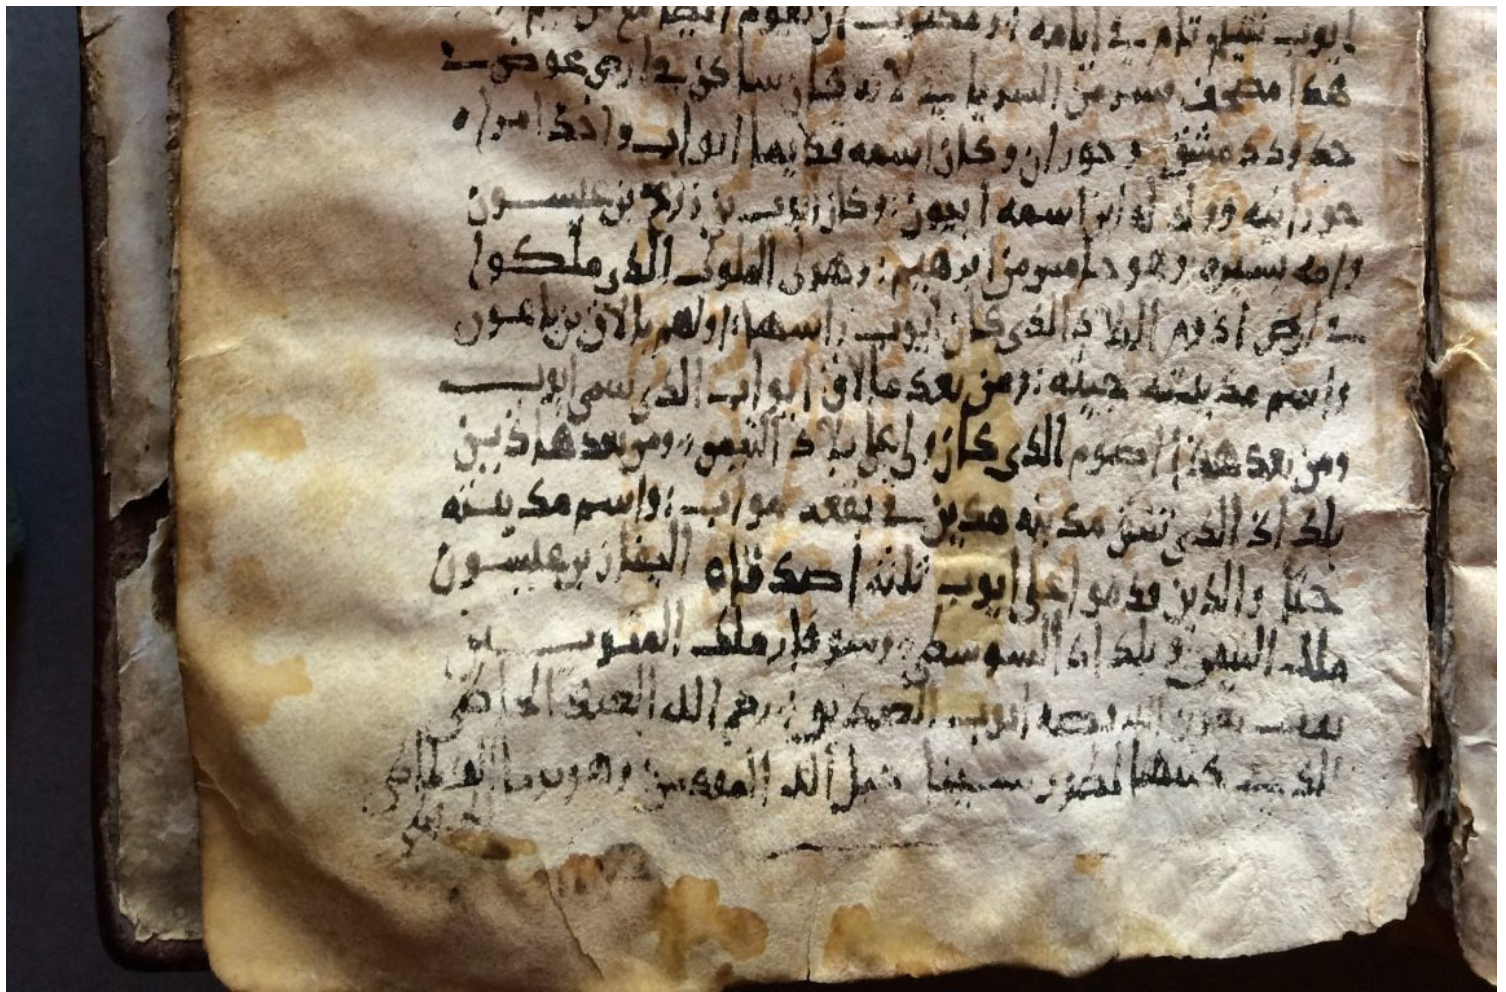 ايوب ثقيل تام في ايامه او مكتوب ان يقوم ايضا مع
هذا مصحف فسر من السريانيه لانه كان ساكن في ارض عوض في
حدود دمشق وحوران وكان اسمه قديما ايواب واخذ امراه
حورانيه وولد له ابن اسمه ابيون وكان ايوب بن زرح بن عيسون
وامه بسيره وهو خامس من ابرهيم وهولى الملوك الذى ملكوا
في ارض اذوم البلاد الذى كان ايوب راسها اولهم بالاق بن باعون
واسم مدينته جبله ومن بعد بالاق ايواب الذى سمى ايوب
ومن بعد هذا اصوم الذى كان والى على بلاد التيمن ومن بعد هاذين
بلداذ الذى شق مدينه مدين في بقعه مواب واسم مدينته
حتل والذين قدموا على ايوب ثلثه اصدقاه اليفاز بن عيسون
ملك التيمن وبلداذ السوسى وسوفار ملك
ايوب الصديق رحم الله العبد الخاطى
الذى كتبها لطور سينا جبل الله المقدس وهو